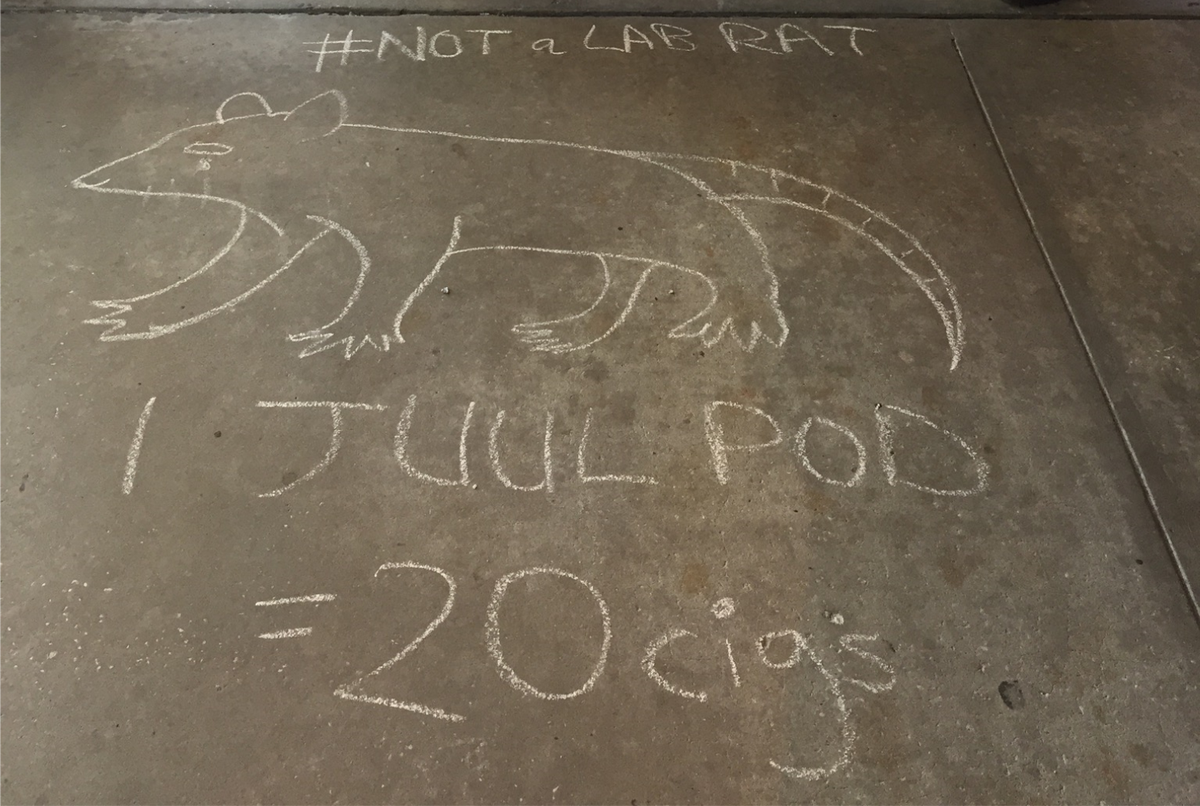 #NOT a LAB RAT
1 JUUL POD
=20 cigs